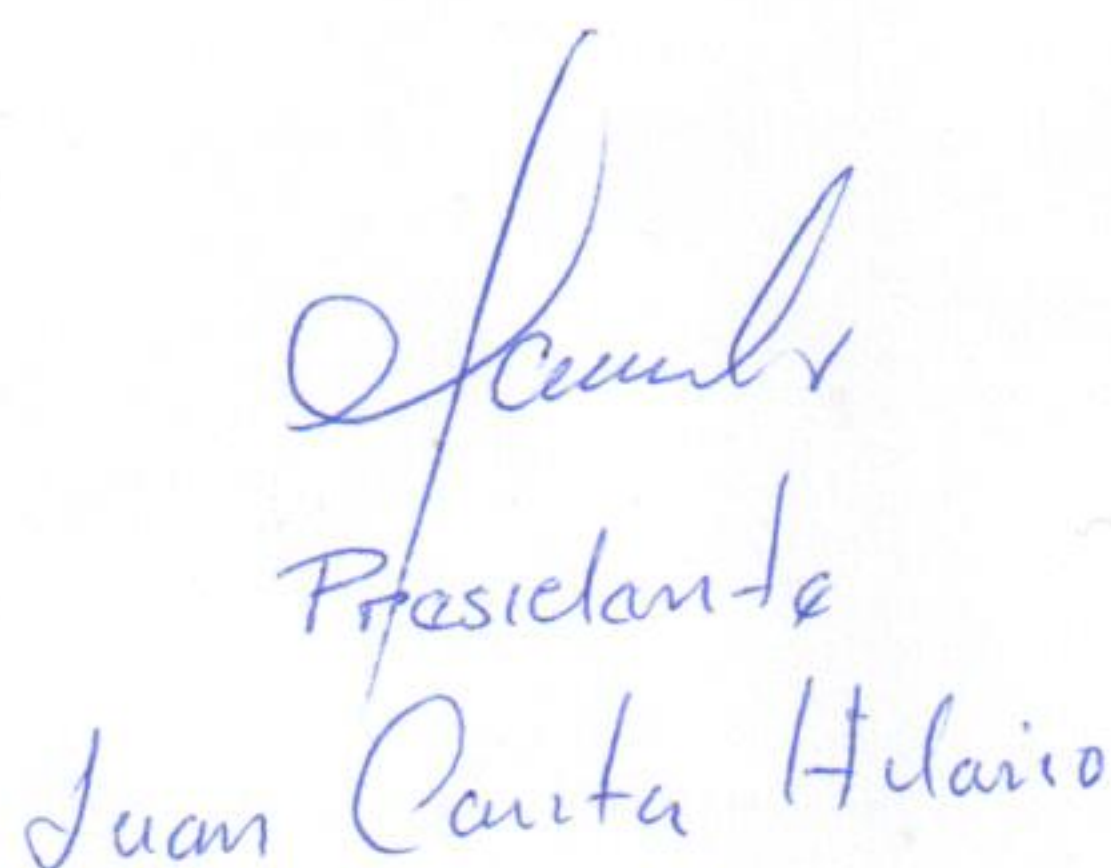 Presidente
Juan Carita Hilario